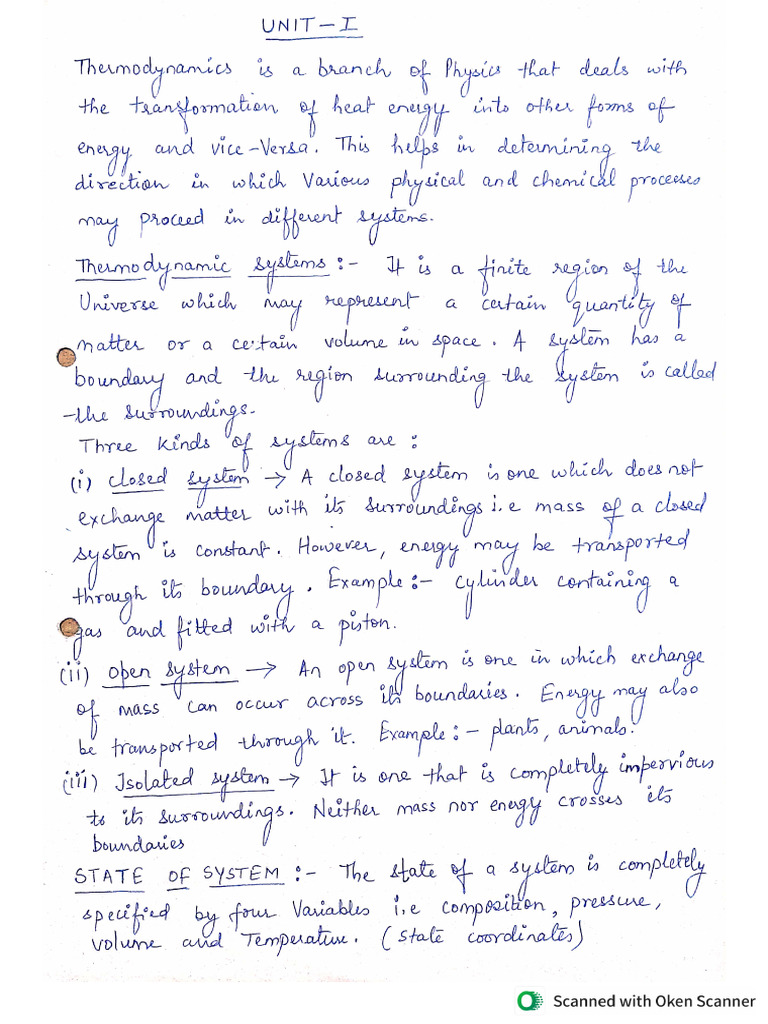 UNIT-I
Thermodynamics is a branch of Physics that deals with
the transformation of heat energy into other forms of
energy and vice-Versa. This helps in determining the
direction in which Various physical and chemical processes
may proceed in different systems.
Thermodynamic systems:- It is a finite region of the
Universe which may represent a certain quantity of
matter or a certain volume in space. A system has a
boundary and the region surrounding the system is called
the surroundings.
Three kinds of systems are:
(i) closed system → A closed system is one which does not
exchange matter with its surroundings i.e mass of a closed
system is constant. However, energy may be transported
through its boundary. Example:- cylinder containing a
gas and fitted with a piston.
(ii) open system → An open system is one in which exchange
of mass can occur across its boundaries. Energy may also
be transported through it. Example:- plants, animals.
(iii) Isolated system → It is one that is completely impervious
to its surroundings. Neither mass nor energy crosses its
boundaries
STATE OF SYSTEM:- The state of a system is completely
specified by four Variables i.e composition, pressure,
volume and Temperature. (state coordinates)
Scanned with Oken Scanner